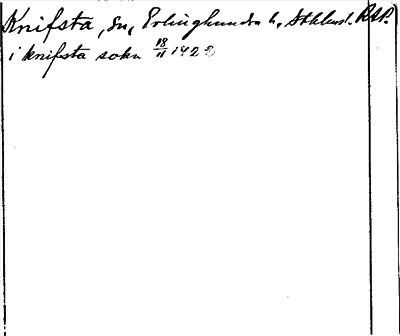 Knifsta, sn, Erlinghundra h, Sthlmsl. RAP.
i knifsta sokn 18/11 1422